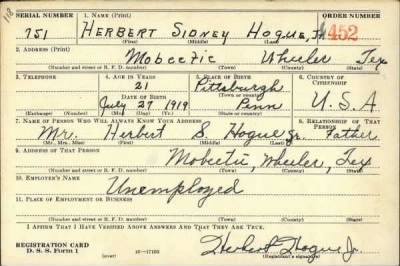 118
SERIAL NUMBER 1. NAME (Print) ORDER NUMBER
751 HERBERT SIDNEY HOGUE, Jr 452
(First) (Middle) (Last)
2. ADDRESS (Print)
Mobeetie Wheeler Tex
(Number and street or R. F. D. number) (Town) (County) (State)
3. TELEPHONE 4. AGE IN YEARS 5. PLACE OF BIRTH 6. COUNTRY OF CITIZENSHIP
21 Pittsburgh
DATE OF BIRTH (Town or county)
July 27 1919 Penn U. S. A.
(Exchange) (Number) (Mo.) (Day) (Yr.) (State or country)
7. NAME OF PERSON WHO WILL ALWAYS KNOW YOUR ADDRESS 8. RELATIONSHIP OF THAT PERSON
Mr. Herbert S. Hogue Sr. Father
(Mr., Mrs., Miss) (First) (Middle) (Last)
9. ADDRESS OF THAT PERSON
Mobeetie, Wheeler, Tex
(Number and street or R. F. D. number) (Town) (County) (State)
10. EMPLOYER'S NAME
Unemployed
11. PLACE OF EMPLOYMENT OR BUSINESS
(Number and street or R. F. D. number) (Town) (County) (State)
I AFFIRM THAT I HAVE VERIFIED ABOVE ANSWERS AND THAT THEY ARE TRUE.
REGISTRATION CARD
D. S. S. Form 1 (over) 16—17105 Herbert Hogue Jr.
(Registrant's signature)